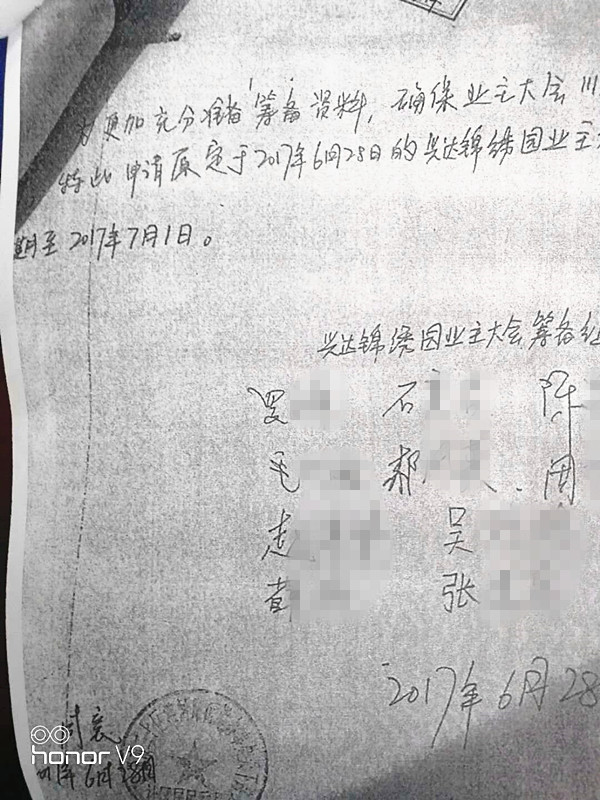 为更加充分准备筹备资料，确保业主大会川
特此申请原定于2017年6月28日的兴达锦绣园业主
期至2017年7月1日。
兴达锦绣园业主大会筹备组
罗 石 陈
毛 郝 周
赵 吴
黄 张
2017年6月28
honor V9
年6月